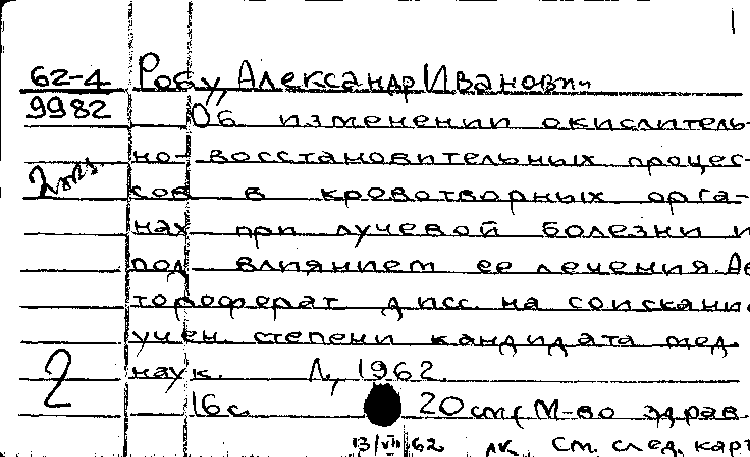 62-4 Робу, Александр Иванович
9982 Об изменении окислитель-
2 экз. но-восстановительных процес-
сов в кроветворных орга-
нах при лучевой болезни и
под влиянием ее лечения. Ав
тореферат дисс. на соискани
учен. степени кандидата мед.
2 наук. Л., 1962.
16 с. 20 см (М-во здрав.
13/VII 62 лк См. след. карт